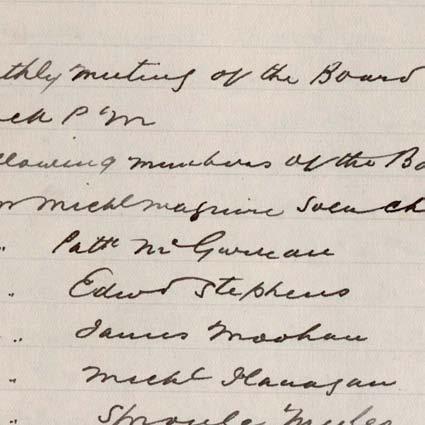 thly Meeting of the Board
ck P.M
llowing members of the Bo
Michl Maguire
" Pattk McGurnan
" Edwd Stephens
" James Moohan
" Michl Flanagan
" Sproule Myles